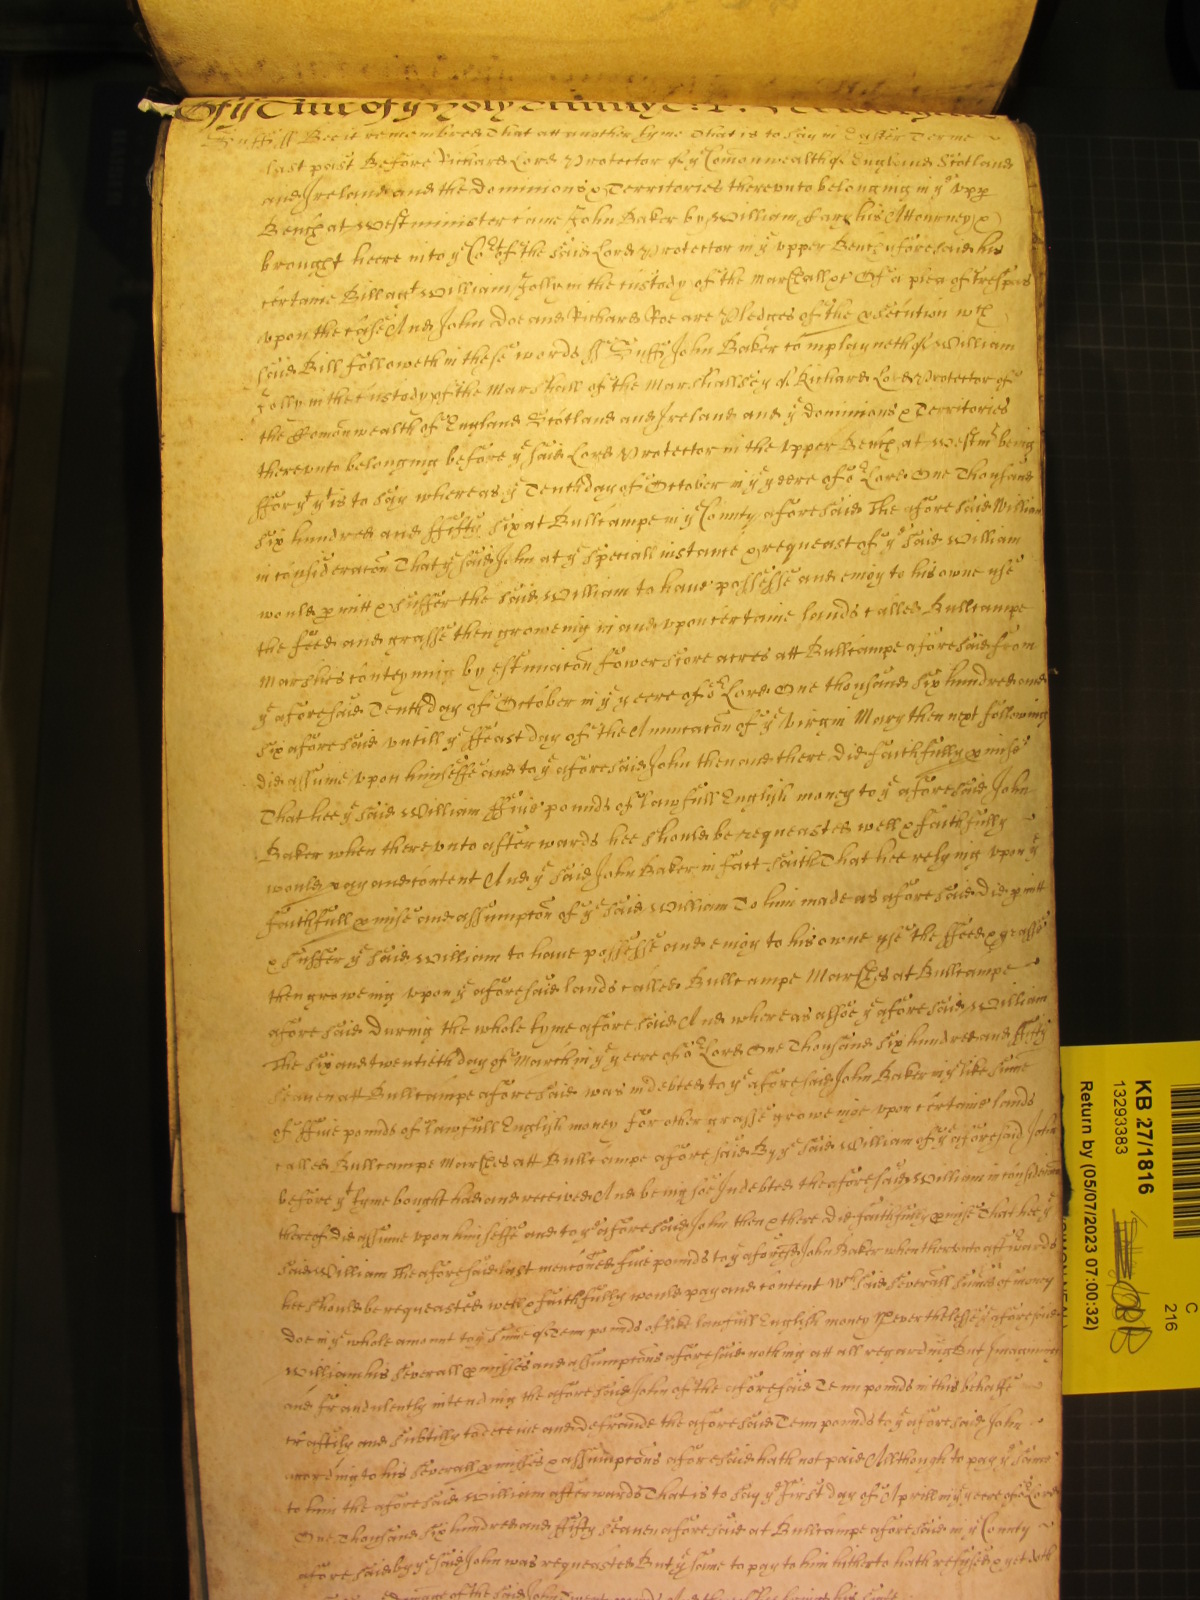 Of ye Time of ye Holy Trinity
Suff. ss Bee it remembred That att another tyme That is to say in Easter Terme
last past Before Richard Lord Protector of ye Comonwealth of England Scotland
and Ireland and the dominions & Territories thereunto belonging in ye upp
Bench at Westminister came John Baker by William his Attourney &
brought heere into ye Cort of the said Lord Protector in ye upper Bench aforesaid his
certaine Bill agt William Jolly in the custody of the Marshall &c Of a plea of trespas
upon the case And John Doe and Richard Roe are Pledges of the psecution wch
said Bill followeth in these words ss Suff. John Baker complayneth of William
Jolly in the custody of the Marshall of the Marshallsey of Richard Lord Protector of
the Comonwealth of England Scotland and Ireland and ye dominions & Territories
thereunto belonging before ye said Lord Protector in the upper Bench at Westmr being
ffor yt yt is to say whereas ye Tenth day of October in ye yeere of or Lord One Thousand
six hundred and ffifty six at Bullcampe in ye County aforesaid The aforesaid William
in consideracon That ye said John at ye speciall instance & requeast of ye said William
would pmitt & suffer the said William to have possesse and enioy to his owne use
the feed and grasse then growenig in and upon certaine lands called Bullcampe
Marshes conteynnig by estimacon fower score acres att Bullcampe aforesaid from
ye aforesaid Tenth day of October in ye yeere of or Lord One thousand six hundred and
six aforesaid untill ye ffeast day of the Annuncacon of ye Virgin Mary then next following
did assume upon himselfe and to ye aforesaid John then and there did faithfully pmise
That hee ye said William ffive pounds of lawfull English money to ye aforesaid John
Baker when thereunto afterwards hee should be requeasted well & faithfully
would pay and content And ye said John Baker in fact saith That hee relying upon ye
faithfull pmise and assumpton of ye said William To him made as aforesaid did pmitt
& suffer ye said William to have possesse and enioy to his owne use the ffeed & grasse
then growenig upon ye aforesaid lands called Bullcampe Marshes at Bullcampe
aforesaid during the whole tyme aforesaid And whereas allsoe ye aforesaid William
The six and twentieth day of March in ye yeere of or Lord One Thousand six hundred and ffifty
seaven att Bullcampe aforesaid was indebted to ye aforesaid John Baker in ye like sume
of ffive pounds of lawfull English money for other grasse groweinge upon certaine lands
called Bullcampe Marshes att Bullcampe aforesaid By ye said William of ye aforesaid John
before yt tyme bought had and received And being soe Indebted the aforesaid William in consideracon
thereof did assume upon himselfe and to ye aforesaid John then & there did faithfully pmise That hee ye
said William The aforesaid last menconed five pounds to ye aforesaid John Baker when thereunto afterwards
hee should be requeasted well & faithfully would pay and content Wch said severall sumes of money
doe in ye whole amount to ye sume of Tenn pounds of like lawfull English money Neverthelesse ye aforesaid
William his severall pmisses and assumptons aforesaid nothing att all regarding But Imagining
and fraudulently intending the aforesaid John of the aforesaid Tenn pounds in this behalfe
craftily and subtilly to deceive and defraude the aforesaid Tenn pounds to ye aforesaid John
according to his severall pmisses & assumptons aforesaid hath not paid Allthough to pay ye same
to him the aforesaid William afterwards That is to say ye First day of Aprill in ye yeere of or Lord
One Thousand six hundred and ffifty seaven aforesaid at Bullcampe aforesaid in ye County
aforesaid by ye said John was requeasted But ye same to pay to him hitherto hath refused & yet doth
of the said John
KB 27/1816
13293383
Return by (05/07/2023 07:00:32)
C
216